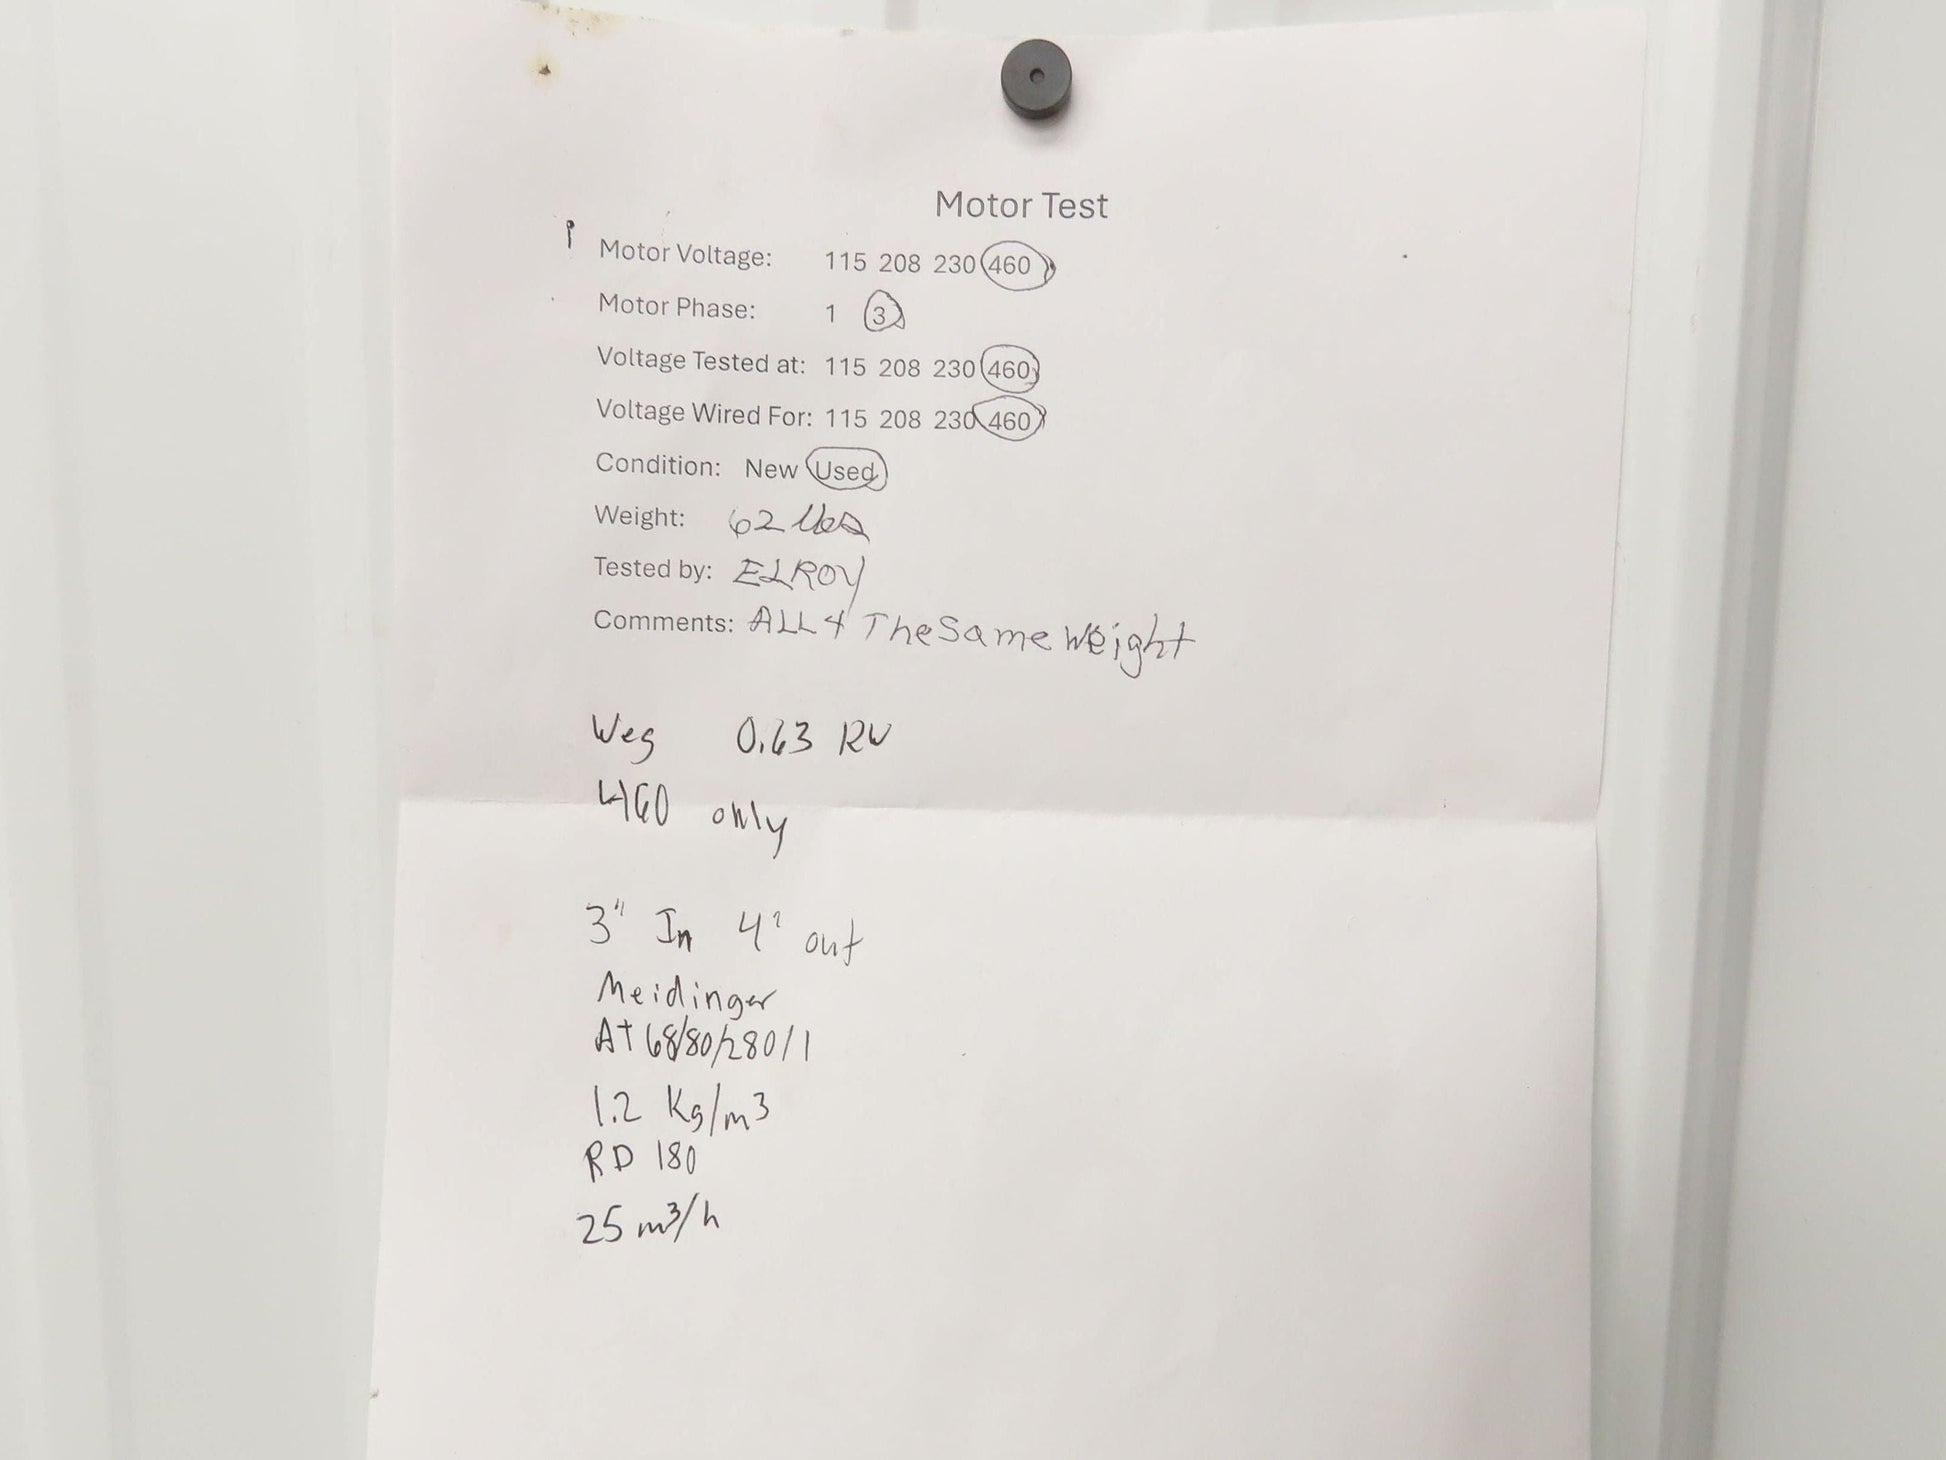 Motor Test
Motor Voltage: 115 208 230 460
Motor Phase: 1 3
Voltage Tested at: 115 208 230 460
Voltage Wired For: 115 208 230 460
Condition: New Used
Weight: 62 lbs
Tested by: ELROY
Comments: ALL 4 The Same Weight
Weg 0.63 KW
460 only
3" In 4" out
Meidinger
AT 68/80/280/1
1.2 Kg/m3
RD 180
25 m³/h